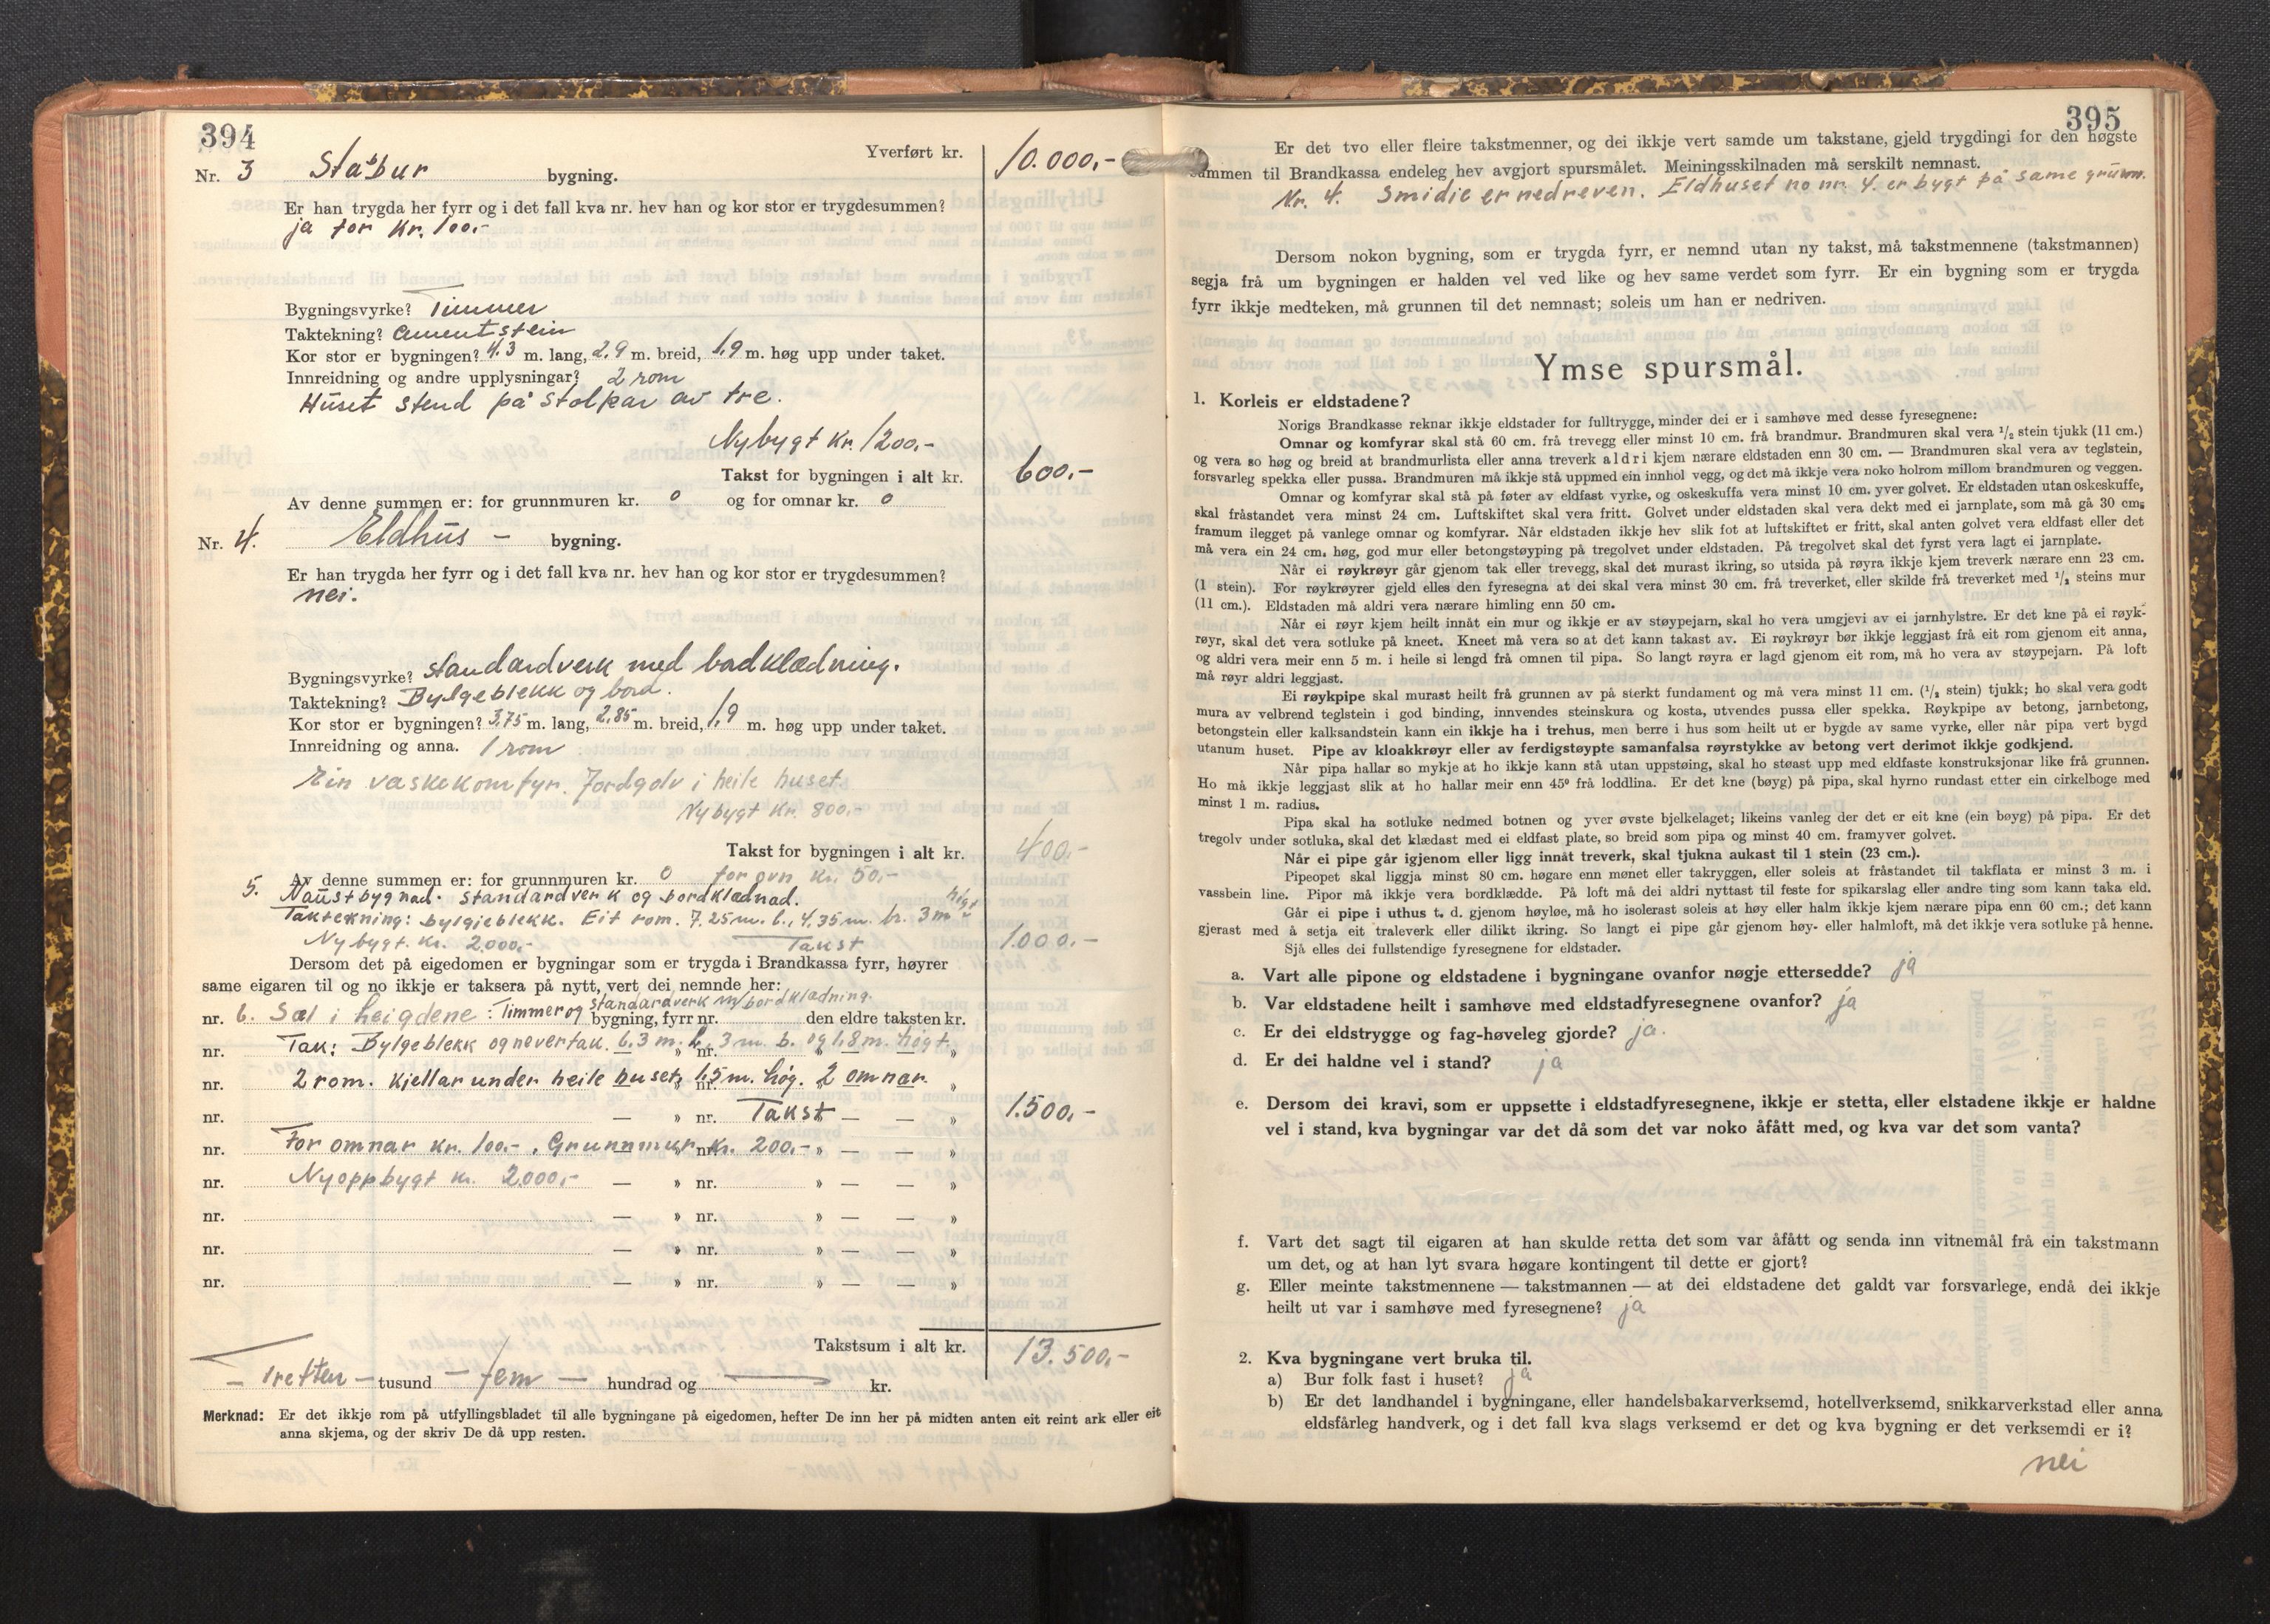 394
Yverført kr. 10.000,-
Nr. 3 Stabur bygning.
Er han trygda her fyrr og i det fall kva nr. hev han og kor stor er trygdesummen?
ja for Kr. 100.-
Bygningsvyrke? Timmer
Taktekning? Cementstein
Kor stor er bygningen? 4.3 m. lang, 2,9 m. breid, 1,9 m. høg upp under taket.
Innreidning og andre upplysningar? 2 rom
Huset stend på stolpar av tre.
Nybygt kr. 1200,-
Takst for bygningen i alt kr. 600.-
Av denne summen er: for grunnmuren kr. 0 og for omnar kr. 0
Nr. 4. Eldhus - bygning.
Er han trygda her fyrr og i det fall kva nr. hev han og kor stor er trygdesummen?
nei.
Bygningsvyrke? standardverk med bordklædning.
Taktekning? Bylgeblekk og bord.
Kor stor er bygningen? 3.75 m. lang, 2,85 m. breid, 1,9 m. høg upp under taket.
Innreidning og anna. 1 rom
Ein vaskekomfyr. Jordgolv i heile huset.
Nybygt kr. 800.-
Takst for bygningen i alt kr. 400.-
Av denne summen er: for grunnmuren kr. 0 for ovn kr. 50.-
5. Naustbygnad. Standardverk og bordklædnad.
Taktekning: bylgjeblekk. Eit rom. 7.25 m. l., 4,35 m. br. 3 m høgt
Nybygt. kr. 2.000.- Takst 1.000,-
Dersom det på eigedomen er bygningar som er trygda i Brandkassa fyrr, høyrer
same eigaren til og no ikkje er taksera på nytt, vert dei nemnde her:
nr. 6. Sæl i heigdene: Timmer og standardverk m/bordklædning. bygning, fyrr nr. den eldre taksten kr.
nr. Tak: Bylgeblekk og nevertak. 6,3 m. l, 3 m. b. og 1,8 m. høgt. — » nr. » — — »
nr. 2 rom. Kjellar under heile huset, 1,5 m. høg. 2 omnar. — » nr. » — — »
nr. — » nr. Takst — — » 1.500,-
nr. For omnar kr. 100.-. Grunnmur kr. 200.- — » nr. » — — »
nr. Nyoppbygt kr. 2.000,- — » nr. » — — »
nr. — » nr. » — — »
nr. — » nr. » — — »
nr. — » nr. » — — »
Takstsum i alt kr. 13.500,-
— Tretten — tusund — fem — hundrad og — kr.
Merknad: Er det ikkje rom på utfyllingsbladet til alle bygningane på eigedomen, hefter De inn her på midten anten eit reint ark eller eit
anna skjema, og der skriv De då upp resten.
395
Er det tvo eller fleire takstmenner, og dei ikkje vert samde um takstane, gjeld trygdingi for den høgste
summen til Brandkassa endeleg hev avgjort spursmålet. Meiningsskilnaden må serskilt nemnast.
Nr. 4. Smidie er nedreven. Eldhuset no nr. 4. er bygt på same grunn.
Dersom nokon bygning, som er trygda fyrr, er nemnd utan ny takst, må takstmennene (takstmannen)
segja frå um bygningen er halden vel ved like og hev same verdet som fyrr. Er ein bygning som er trygda
fyrr ikkje medteken, må grunnen til det nemnast; soleis um han er nedriven.
Ymse spursmål.
1. Korleis er eldstadene?
Norigs Brandkasse reknar ikkje eldstader for fulltrygge, minder dei er i samhøve med desse fyresegnene:
Omnar og komfyrar skal stå 60 cm. frå trevegg eller minst 10 cm. frå brandmur. Brandmuren skal vera ½ stein tjukk (11 cm.)
og vera so høg og breid at brandmurlista eller anna treverk aldri kjem nærare eldstaden enn 30 cm. — Brandmuren skal vera av teglstein,
forsvarleg spekka eller pussa. Brandmuren må ikkje stå uppmed ein innhol vegg, og det må ikkje vera noko holrom millom brandmuren og veggen.
Omnar og komfyrar skal stå på føter av eldfast vyrke, og oskeskuffa vera minst 10 cm. yver golvet. Er eldstaden utan oskeskuffe,
skal fråstandet vera minst 24 cm. Luftskiftet skal vera fritt. Golvet under eldstaden skal vera dekt med ei jarnplate, som må gå 30 cm.
framum ilegget på vanlege omnar og komfyrar. Når eldstaden ikkje hev slik fot at luftskiftet er fritt, skal anten golvet vera eldfast eller det
må vera ein 24 cm. høg, god mur eller betongstøyping på tregolvet under eldstaden. På tregolvet skal det fyrst vera lagt ei jarnplate.
Når ei røykrøyr går gjenom tak eller trevegg, skal det murast ikring, so utsida på røyra ikkje kjem treverk nærare enn 23 cm.
(1 stein). For røykrøyrer gjeld elles den fyresegna at dei skal vera minst 30 cm. frå treverket, eller skilde frå treverket med ½ steins mur
(11 cm.). Eldstaden må aldri vera nærare himling enn 50 cm.
Når ei røyr kjem heilt innåt ein mur og ikkje er av støypejarn, skal ho vera umgjevi av ei jarnhylstre. Er det kne på ei røyk-
røyr, skal det vera sotluke på kneet. Kneet må vera so at det kann takast av. Ei røykrøyr bør ikkje leggjast frå eit rom gjenom eit anna,
og aldri vera meir enn 5 m. i heile si lengd frå omnen til pipa. So langt røyra er lagd gjenom eit rom, må ho vera av støypejarn. På loft
må røyr aldri leggjast.
Ei røykpipe skal murast heilt frå grunnen av på sterkt fundament og må vera minst 11 cm. (½ stein) tjukk; ho skal vera godt
mura av velbrend teglstein i god binding, innvendes steinskura og kosta, utvendes pussa eller spekka. Røykpipe av betong, jarnbetong,
betongstein eller kalksandstein kann ein ikkje ha i trehus, men berre i hus som heilt ut er bygde av same vyrke, eller når pipa vert bygd
utanum huset. Pipe av kloakkrøyr eller av ferdigstøypte samanfalsa røyrstykke av betong vert derimot ikkje godkjend.
Når pipa hallar so mykje at ho ikkje kann stå utan uppstøing, skal ho støast upp med eldfaste konstruksjonar like frå grunnen.
Ho må ikkje leggjast slik at ho hallar meir enn 45° frå loddlina. Er det kne (bøyg) på pipa, skal hyrno rundast etter ein cirkelboge med
minst 1 m. radius.
Pipa skal ha sotluke nedmed botnen og yver øvste bjelkelaget; likeins vanleg der det er eit kne (ein bøyg) på pipa. Er det
tregolv under sotluka, skal det klædast med ei eldfast plate, so breid som pipa og minst 40 cm. framyver golvet.
Når ei pipe går igjenom eller ligg innåt treverk, skal tjukna aukast til 1 stein (23 cm.).
Pipeopet skal liggja minst 80 cm. høgare enn mønet eller takryggen, eller soleis at fråstandet til takflata er minst 3 m. i
vassbein line. Pipor må ikkje vera bordklædde. På loft må dei aldri nyttast til feste for spikarslag eller andre ting som kann taka eld.
Går ei pipe i uthus t. d. gjenom høyløe, må ho isolerast soleis at høy eller halm ikkje kjem nærare pipa enn 60 cm.; det kann
gjerast med å setja eit traleverk eller dilikt ikring. So langt ei pipe går gjenom høy- eller halmloft, må det ikkje vera sotluke på henne.
Sjå elles dei fullstendige fyresegnene for eldstader.
a. Vart alle pipone og eldstadene i bygningane ovanfor nøgje ettersedde? ja
b. Var eldstadene heilt i samhøve med eldstadfyresegnene ovanfor? ja
c. Er dei eldstrygge og fag-høveleg gjorde? ja.
d. Er dei haldne vel i stand? ja
e. Dersom dei kravi, som er uppsette i eldstadfyresegnene, ikkje er stetta, eller elstadene ikkje er haldne
vel i stand, kva bygningar var det då som det var noko åfått med, og kva var det som vanta?
f. Vart det sagt til eigaren at han skulde retta det som var åfått og senda inn vitnemål frå ein takstmann
um det, og at han lyt svara høgare kontingent til dette er gjort?
g. Eller meinte takstmennene — takstmannen — at dei eldstadene det galdt var forsvarlege, endå dei ikkje
heilt ut var i samhøve med fyresegnene? ja
2. Kva bygningane vert bruka til.
a) Bur folk fast i huset? ja
b) Er det landhandel i bygningane, eller handelsbakarverksemd, hotellverksemd, snikkarverkstad eller anna
eldsfårleg handverk, og i det fall kva slags verksemd er det og kva bygning er det verksemdi er i?
nei